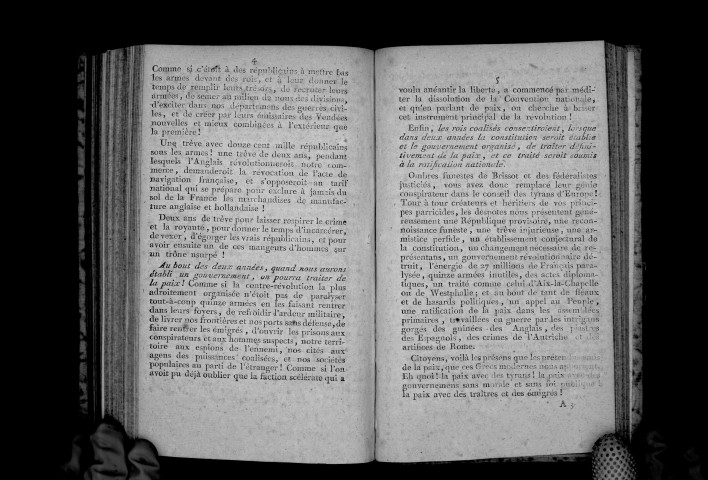 4
Comme si c'étoit à des républicains à mettre bas
les armes devant des rois, et à leur donner le
temps de remplir leurs trésors, de recruter leurs
armées, de semer au milieu de nous des divisions,
d'exciter dans nos départemens des guerres civi-
les, et de créer par leurs émissaires des Vendées
nouvelles et mieux combinées à l'extérieur que
la première!
Une trêve avec douze cent mille républicains
sous les armes! une trêve de deux ans, pendant
lesquels l'Anglais révolutionneroit notre com-
merce, demanderoit la révocation de l'acte de
navigation française, et s'opposeroit au tarif
national qui se prépare pour exclure à jamais du
sol de la France les marchandizes de manufac-
ture anglaise et hollandaise!
Deux ans de trêve pour laisser respirer le crime
et la royauté, pour donner le temps d'incarcérer,
de vexer, d'égorger les vrais républicains, et pour
avoir ensuite un de ces mangeurs d'hommes sur
un trône usurpé!
Au bout des deux années, quand nous aurons
établi un gouvernement, on pourra traiter de
la paix! Comme si la contre-révolution la plus
adroitement organisée n'étoit pas de paralyser
tout-à-coup quinze armées en les faisant rentrer
dans leurs foyers, de refroidir l'ardeur militaire,
de livrer nos frontières et nos ports sans défense, de
faire rentrer les émigrés, d'ouvrir les prisons aux
conspirateurs et aux hommes suspects, notre terri-
toire aux espions de l'ennemi, nos cités aux
agens des puissances coalisées, et nos sociétés
populaires au parti de l'étranger! Comme si l'on
avoit pu déjà oublier que la faction scélérate qui a
5
voulu anéantir la liberté, a commencé par médi-
ter la dissolution de la Convention nationale,
et qu'en parlant de paix, on cherche à briser
cet instrument principal de la révolution!
Enfin, les rois coalisés consentiroient, lorsque
dans deux années la constitution seroit établie
et le gouvernement organisé, de traiter défini-
tivement de la paix, et ce traité seroit soumis
à la ratification nationale.
Ombres funestes de Brissot et des fédéralistes
justiciés, vous avez donc remplacé leur génie
conspirateur dans le conseil des tyrans d'Europe!
Tour à tour créateurs et héritiers de vos princi-
pes parricides, les despotes nous présentent géné-
reusement une République provisoire, une recon-
noissance funeste, une trêve injurieuse, une ar-
mistice perfide, un établissement conjectural de
la constitution, un changement nécessaire de re-
présentans, un gouvernement révolutionnaire dé-
truit, l'énergie de 27 millions de Français para-
lysée, quinze armées inutiles, des actes diploma-
tiques, un traité comme celui d'Aix-la-Chapelle
ou de Westphalie; et au bout de tant de fléaux
et de hasards politiques, un appel au Peuple,
une ratification de la paix dans les assemblées
primaires, travaillées en guerre par les intrigans
gorgés des guinées des Anglais, des piastres
des Espagnols, des crimes de l'Autriche et des
artifices de Rome.
Citoyens, voilà les présens que les prétendus amis
de la paix, que ces Grecs modernes nous apportent.
Eh quoi! la paix avec des tyrans! la paix avec des
gouvernemens sans morale et sans foi
la paix avec des traîtres et des émigrés!
A